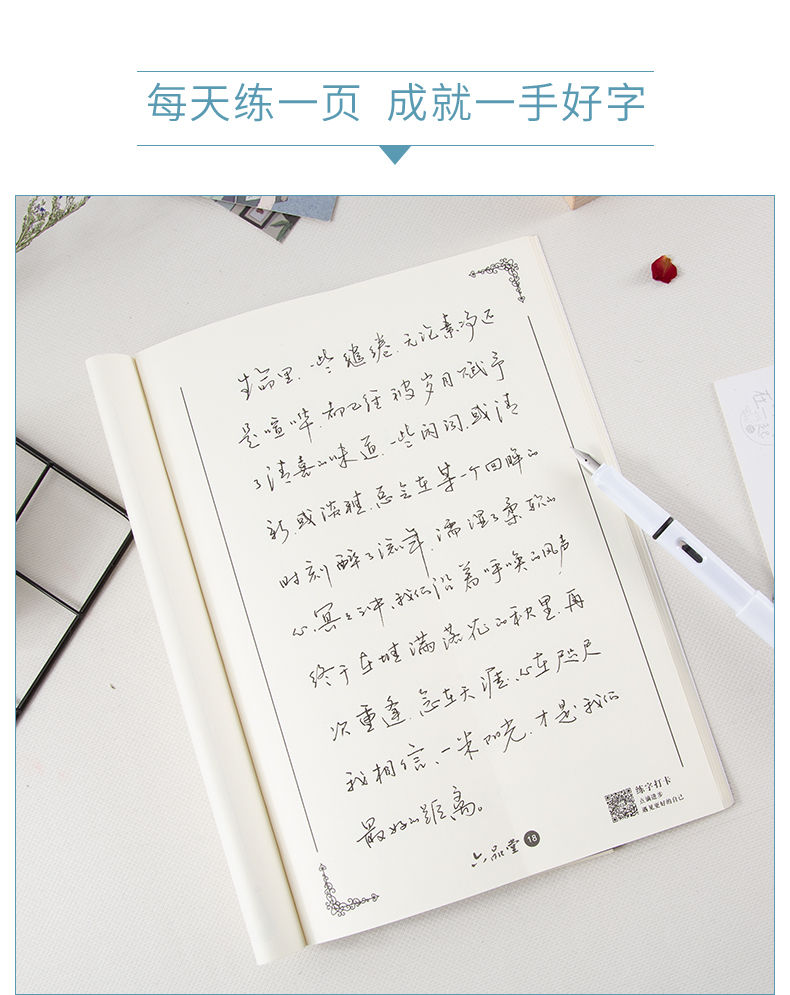 每天练一页 成就一手好字
生命里，一些缱绻，无论素净还
是喧哗，都已经被岁月赋予
了清喜的味道，一些闲词，或清
新，或淡雅，总会在某一个回眸的
时刻醉了流年，濡湿了柔软的
心。冥冥之中，我们沿着呼唤的风声
终于在堆满落花的秋里，再
次重逢，念在天涯，心在咫尺
我相信，一米阳光，才是我们
最好的距离。
六品堂 18
练字打卡
点滴进步
遇见更好的自己